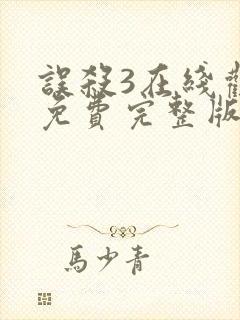 誤殺3在綫觀
免費完整版
馬少青